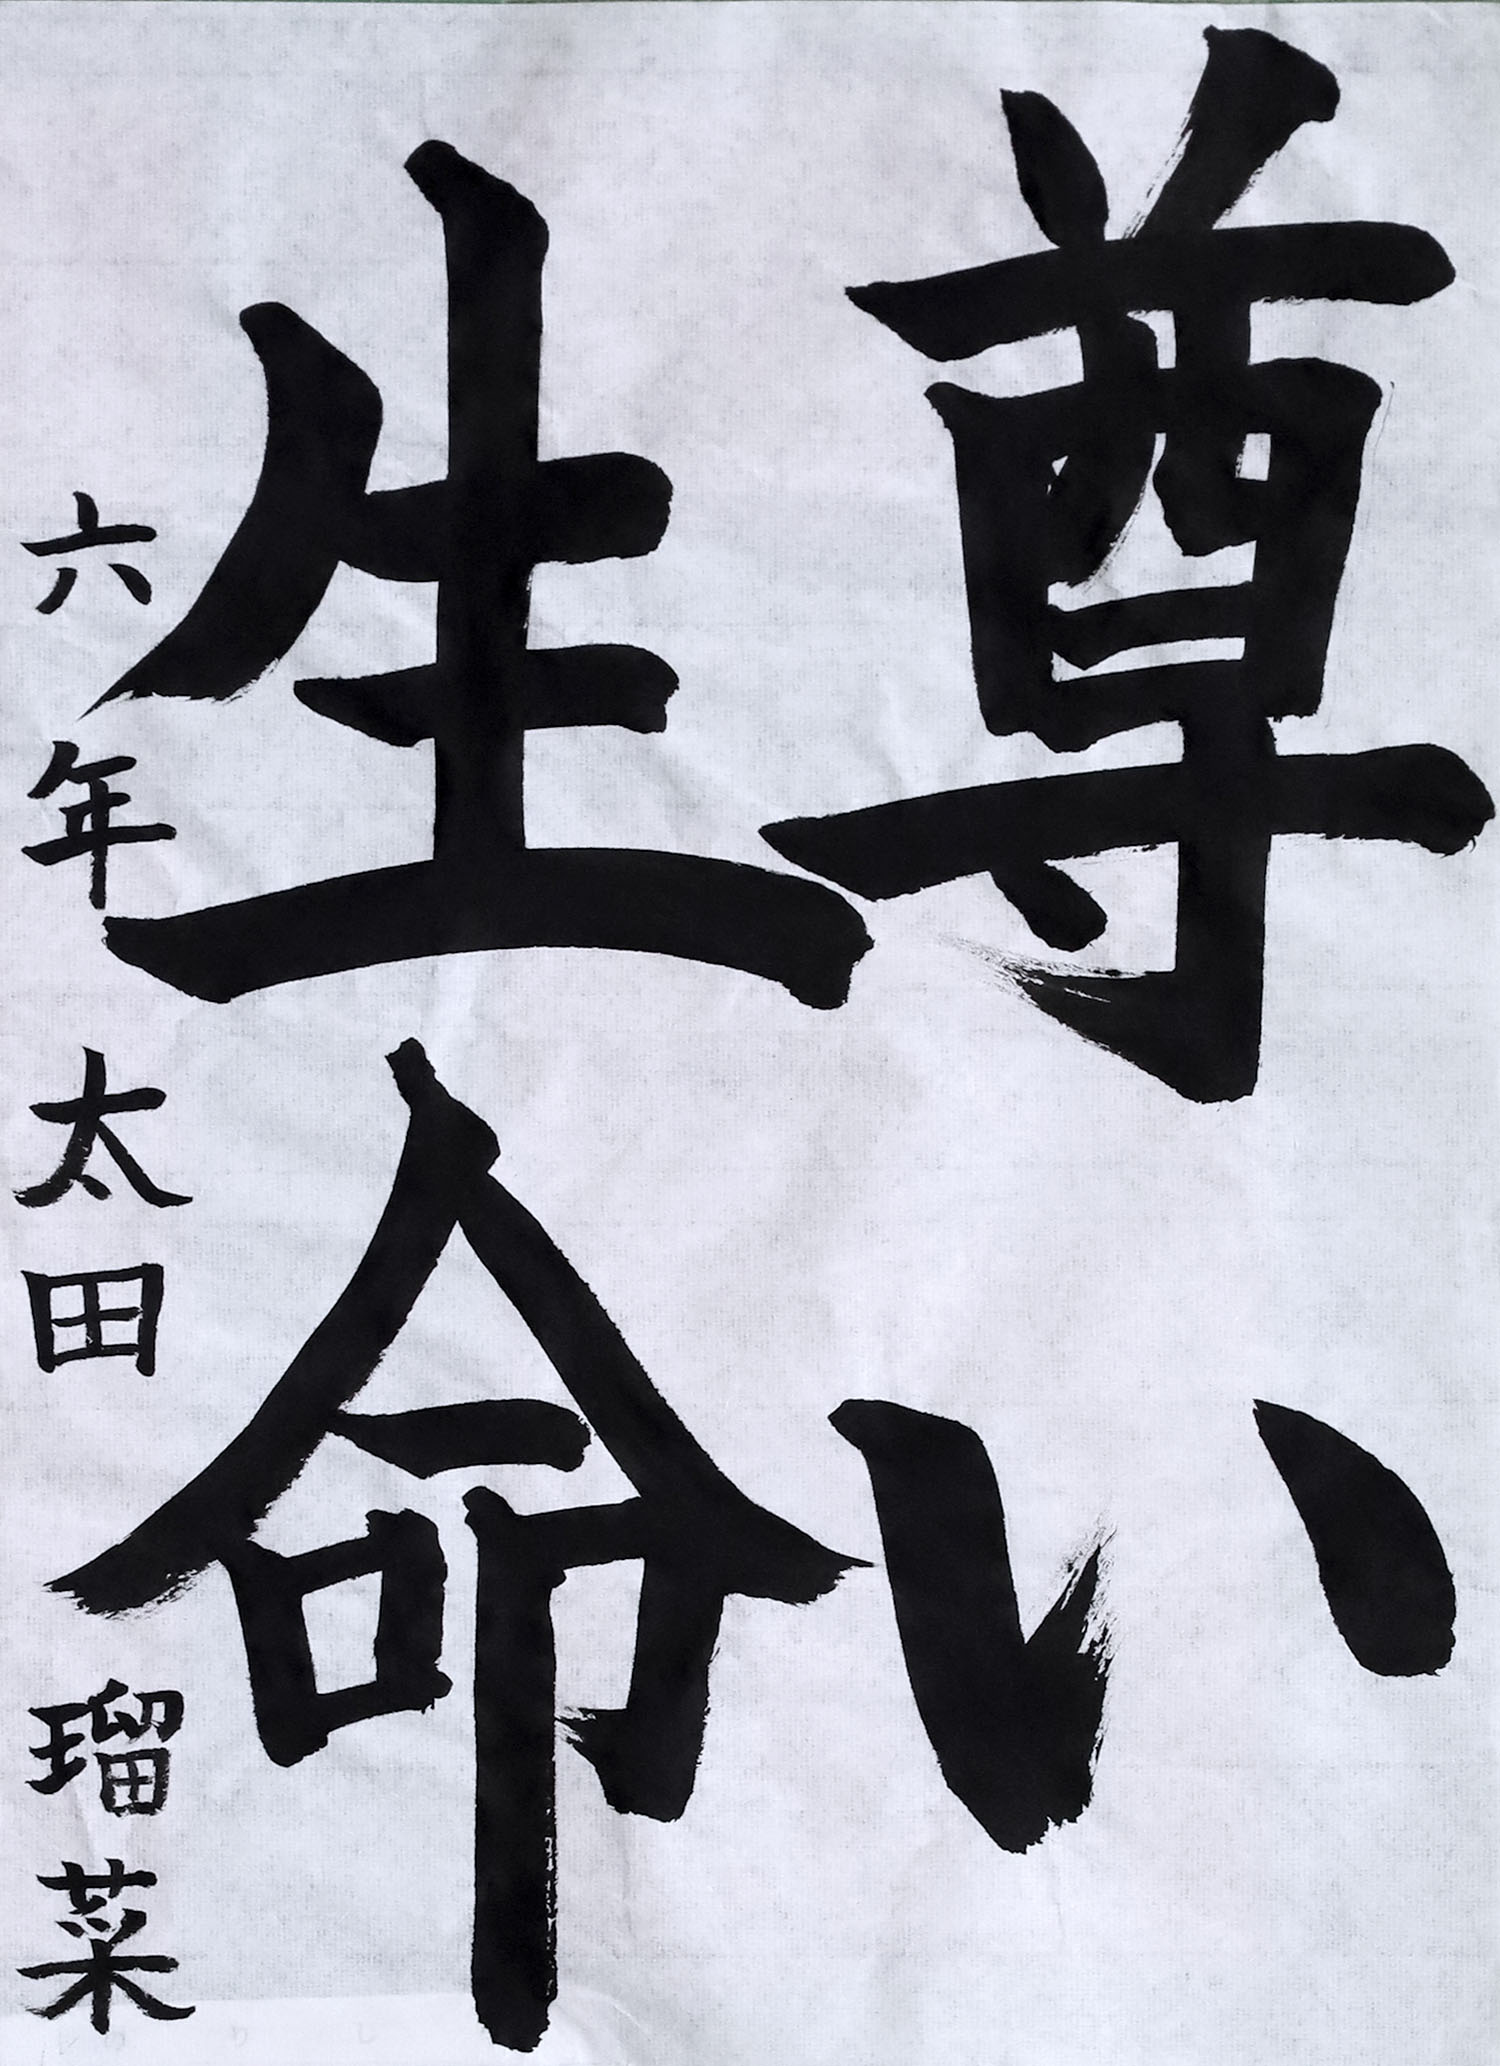 尊い
生命
六年 太田 瑠菜